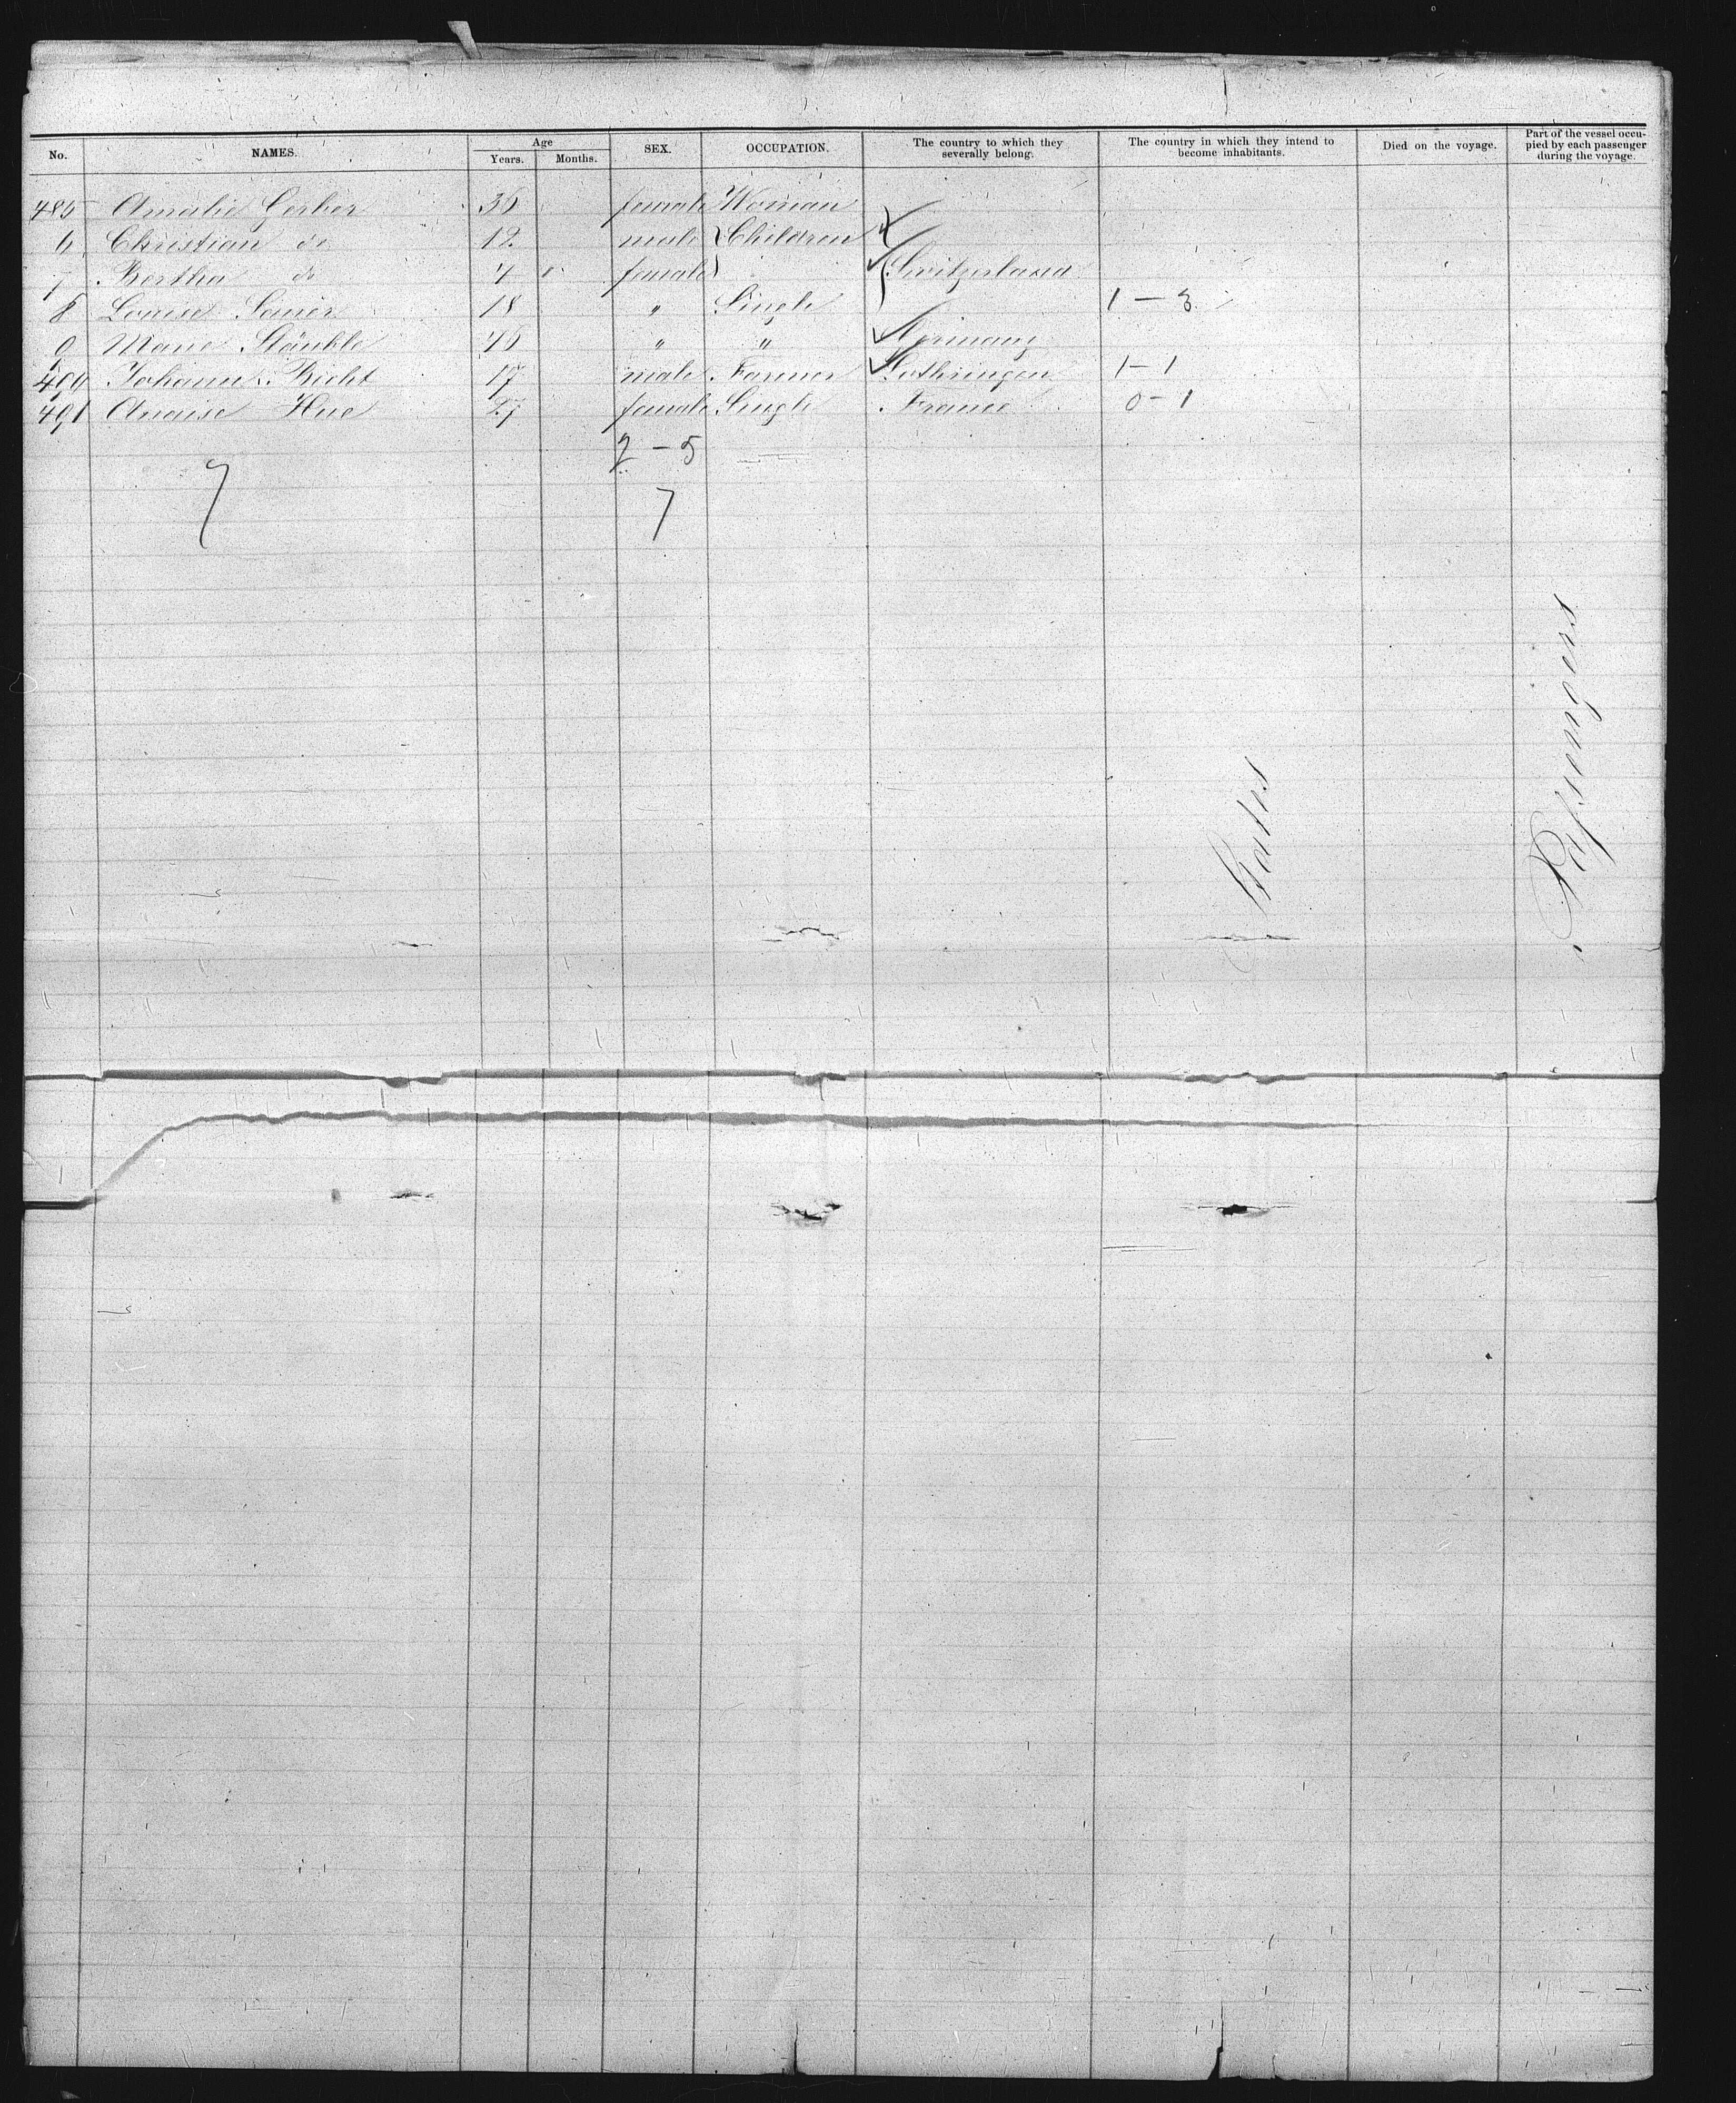 No. NAMES. Age Years. Months. SEX. OCCUPATION. The country to which they severally belong. The country in which they intend to become inhabitants. Died on the voyage. Part of the vessel occupied by each passenger during the voyage.
485 Amalie Gerber 36 female Woman
6 Christian do 12 male } Children 4
7 Bertha do 4 female } Switzerland
8 Louise 18 " Single 1 — 3
9 Marie Stäuble 46 " " Germany
490 Johann Richt 17 male Farmer Lothringen 1 — 1
491 Anaise Hue 27 female Single France 0 — 1
2 — 5
7 7
States
Passengers